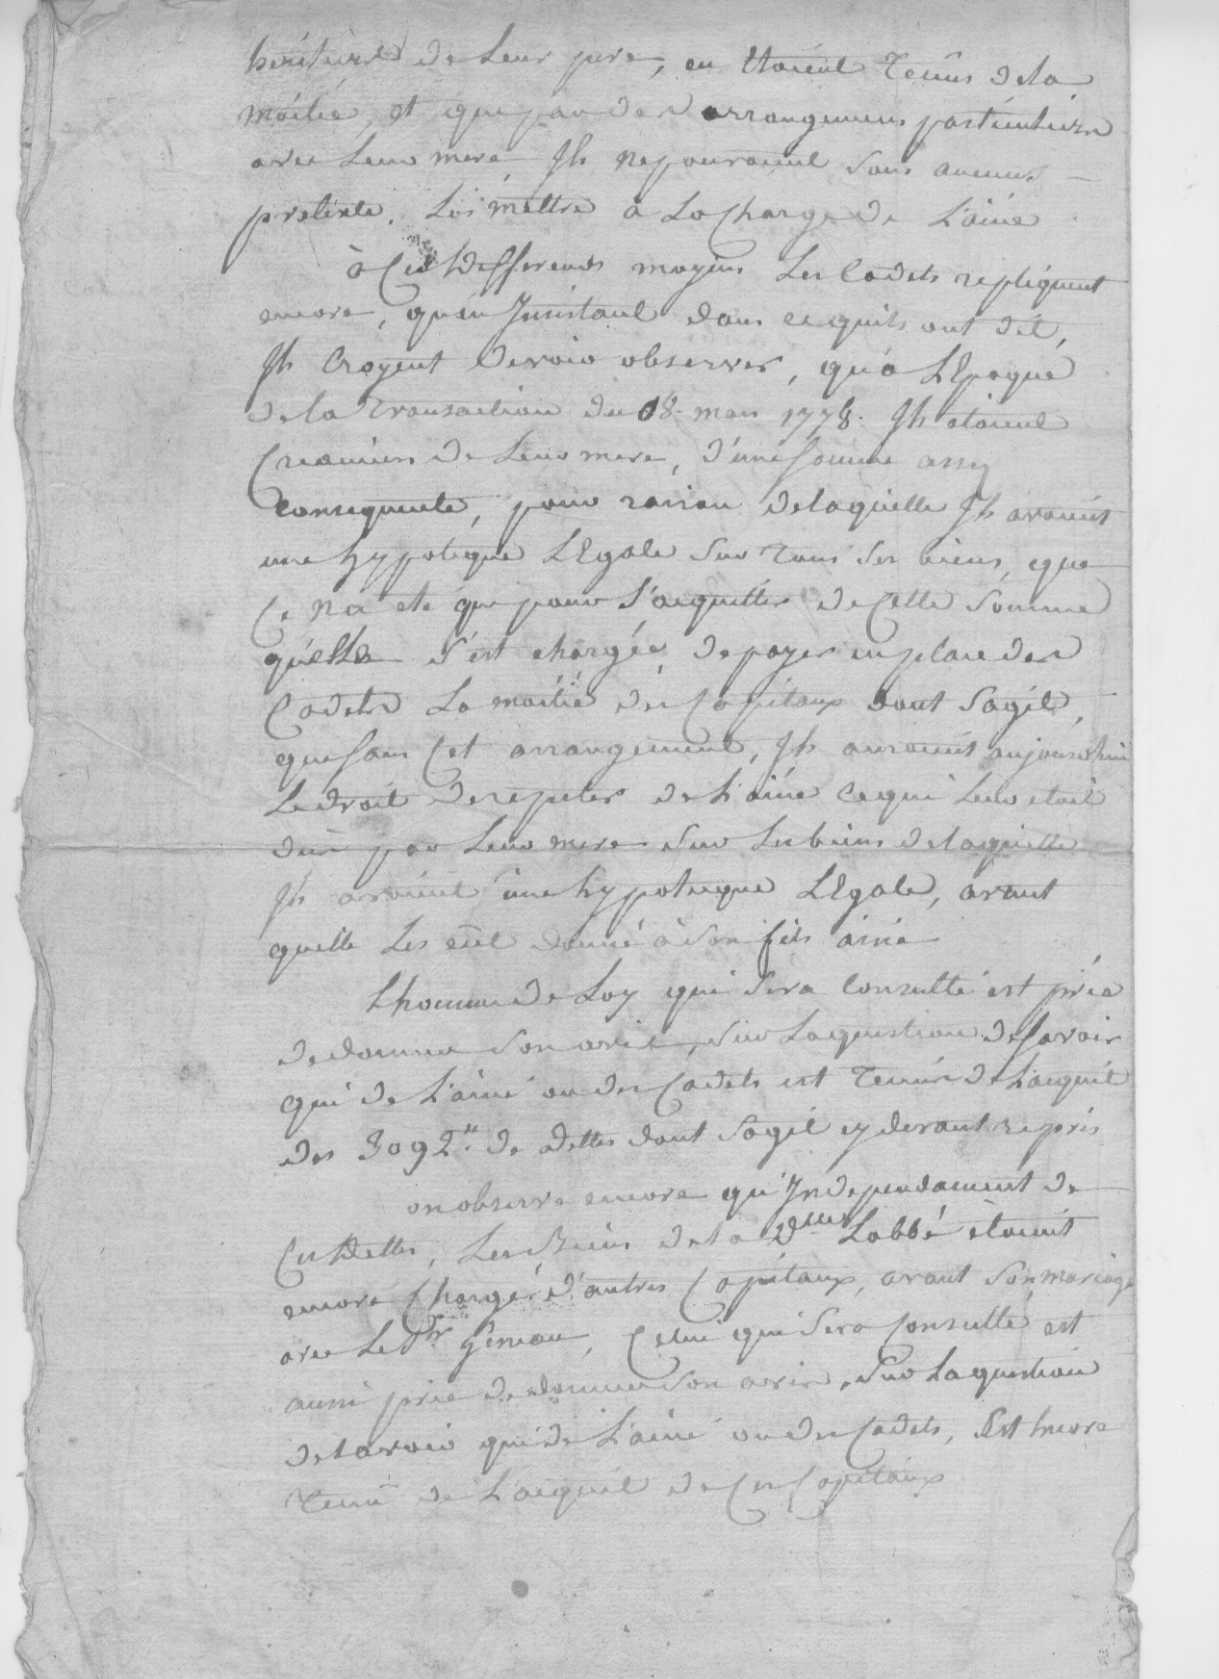 heritiers de Leur pere, en Etoient Tenus dela
moitié, et que par des arrangemens particuliers
avec Leur mere Ils ne pouroient sous aucun
pretexte, Les mettre a La Charge de L'ainé
à Ces Differends moyens Les Cadets repliquent
encore, qu'en Insistant dans ce quils ont dit,
Ils Croyent Devoir observer, qu'a LEpoque
dela Transaction du 18 mars 1778. Ils etoient
Creanciers de Leur mere, d'une somme assez
Consequente, pour raison delaquelle Ils avoient
une hypoteque LEgale sur Tous ses biens, que
Ce na eté que pour s'acquitter de Cette somme
quelle s'est chargée de payer en place des
Cadets La moitié des Capitaux dont sagit,
que sans Cet arrangement, Ils auroient aujourdhui
Le droit de repeter de L'ainé ce qui Leur etoit
due par Leur mere sur Les biens delaquelle
Ils avoient une hypoteque LEgale, avant
quelle Les eut donné à son fils ainé
Lhomme de Loy qui sera Consulté est prié
de donner son avis, sur La question de savoir
qui de L'ainé ou des Cadets est Tenus de L'acquit
des 3092 ₶ de dettes dont sagit cy devant repris
on observe encore qu'Independament de
Ces Dettes, Les Biens de la Dlle Labbé etoient
encore Chargé d'autres Capitaux, avant son mariage
avec Le Sr, Celui qui sera Consulté est
aussi prié de donner son avis, sur La question
de savoir qui de L'ainé ou des Cadets, Est Encore
Tenu de L'acquit de Ces Capitaux